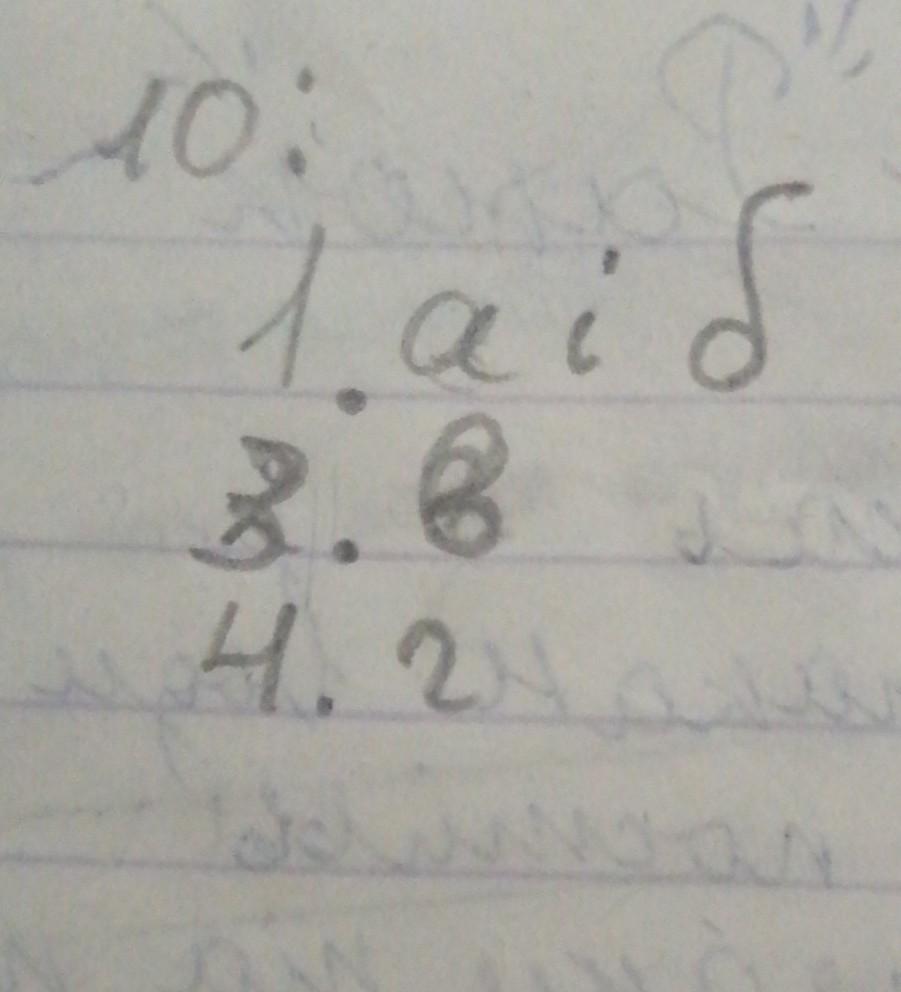 10:
1. а і б
3. в
4. г